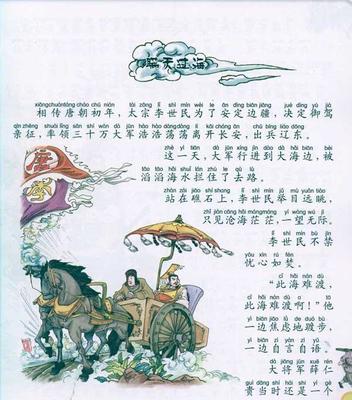 瞒天过海
xiāng chuán táng cháo chū nián tài zōng lǐ shì mín wèi le ān dìng biān jiāng jué dìng yù jià
相传唐朝初年，太宗李世民为了安定边疆，决定御驾
qīn zhēng shuài lǐng sān shí wàn dà jūn hào hào dàng dàng lí kāi cháng ān chū bīng liáo dōng
亲征，率领三十万大军浩浩荡荡离开长安，出兵辽东。
zhè yì tiān dà jūn xíng jìn dào dà hǎi biān bèi
这一天，大军行进到大海边，被
tāo tāo hǎi shuǐ lán zhù le qù lù
滔滔海水拦住了去路。
zhàn zài jiāo shí shang lǐ shì mín jǔ mù yuǎn tiào
站在礁石上，李世民举目远眺，
zhǐ jiàn cāng hǎi máng máng yí wàng wú jì
只见沧海茫茫，一望无际。
lǐ shì mín bù jīn
李世民不禁
yōu xīn rú fén
忧心如焚。
cǐ hǎi nán dù
“此海难渡，
cǐ hǎi nán dù a tā
此海难渡啊！”他
yì biān jiāo lǜ de duó bù
一边焦虑地踱步，
yì biān zì yán zì yǔ
一边自言自语。
dà jiàng jūn xuē rén
大将军薛仁
guì dāng shí hái shì yí gè
贵当时还是一个
唐